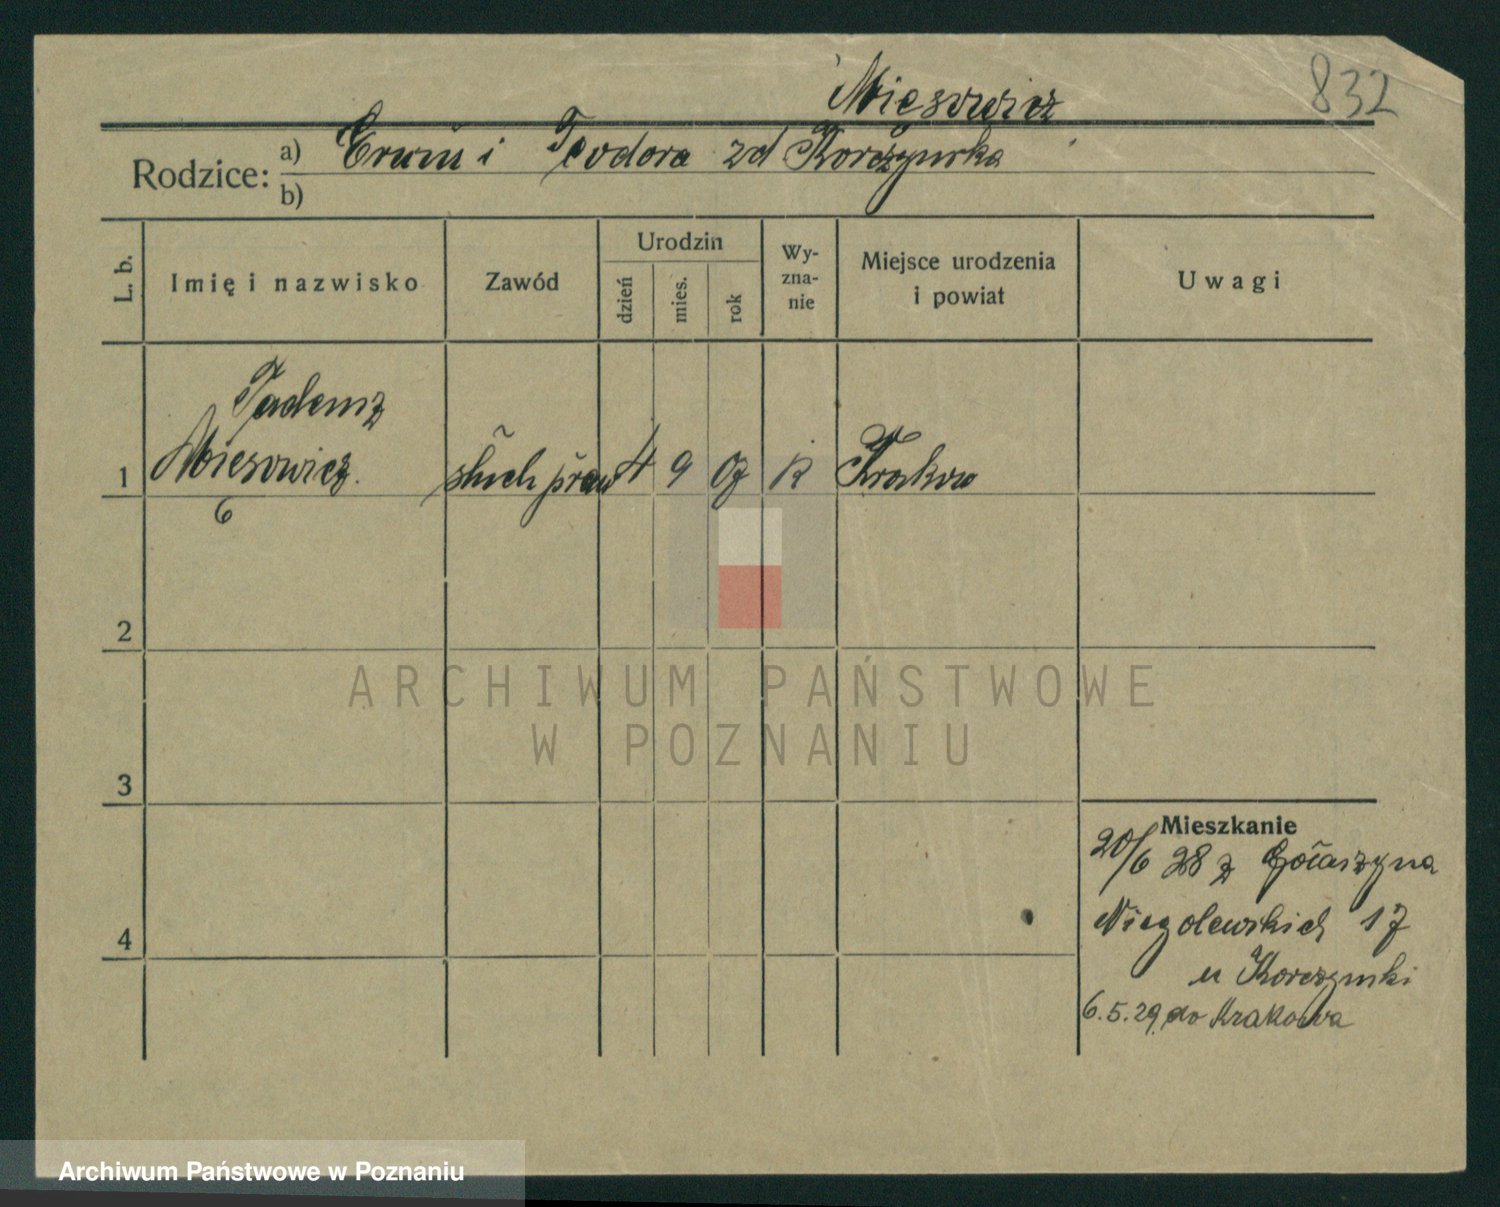 832
Mięsowicz
Rodzice: a) Erwin i Teodora zd Korczyńska
b)
L. b.
Imię i nazwisko
Zawód
Urodzin
dzień
mies.
rok
Wy-
zna-
nie
Miejsce urodzenia
i powiat
Uwagi
Tadeusz
1 Mięsowicz słuch praw 4 9 07 k Krakow
6
2
ARCHIWUM PAŃSTWOWE
W POZNANIU
3
Mieszkanie
20/6 28 z Gołaszyna
4 Niegolewskich 17
u Korczynski
6.5.29 do Krakowa
Archiwum Państwowe w Poznaniu